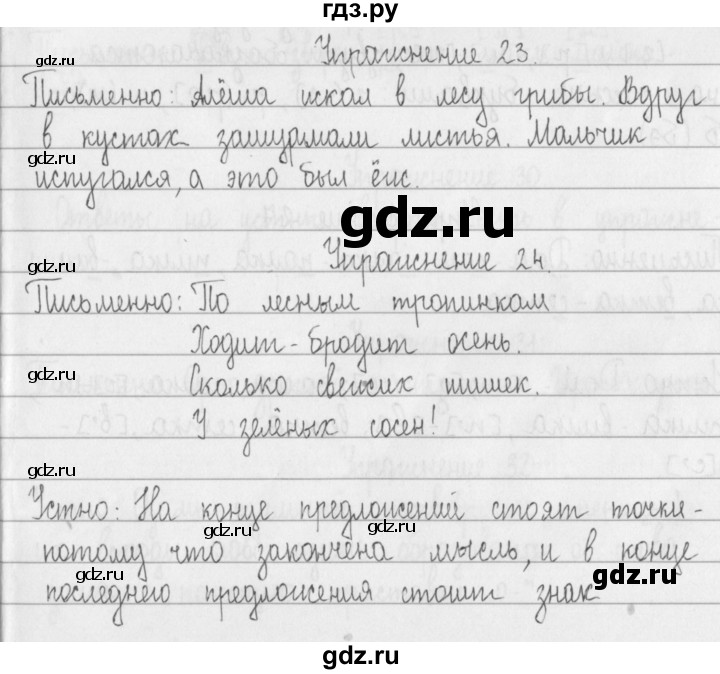 гдз.ру
Упражнение 23.
Письменно: Алёша искал в лесу грибы. Вдруг
gdz.ru gdz.ru
в кустах зашуршали листья. Мальчик
gdz.ru
испугался, а это был ёж.
gdz.ru
gdz.ru
Упражнение 24.
gdz.ru
Письменно: По лесным тропинкам
Ходит-бродит осень.
gdz.ru
Сколько свежих шишек.
У зелёных сосен!
gdz.ru
Устно: На конце предложений стоят точки-
gdz.ru gdz.ru
потому что закончена мысль, и в конце
gdz.ru gdz.ru
последнего предложения стоит знак
gdz.ru